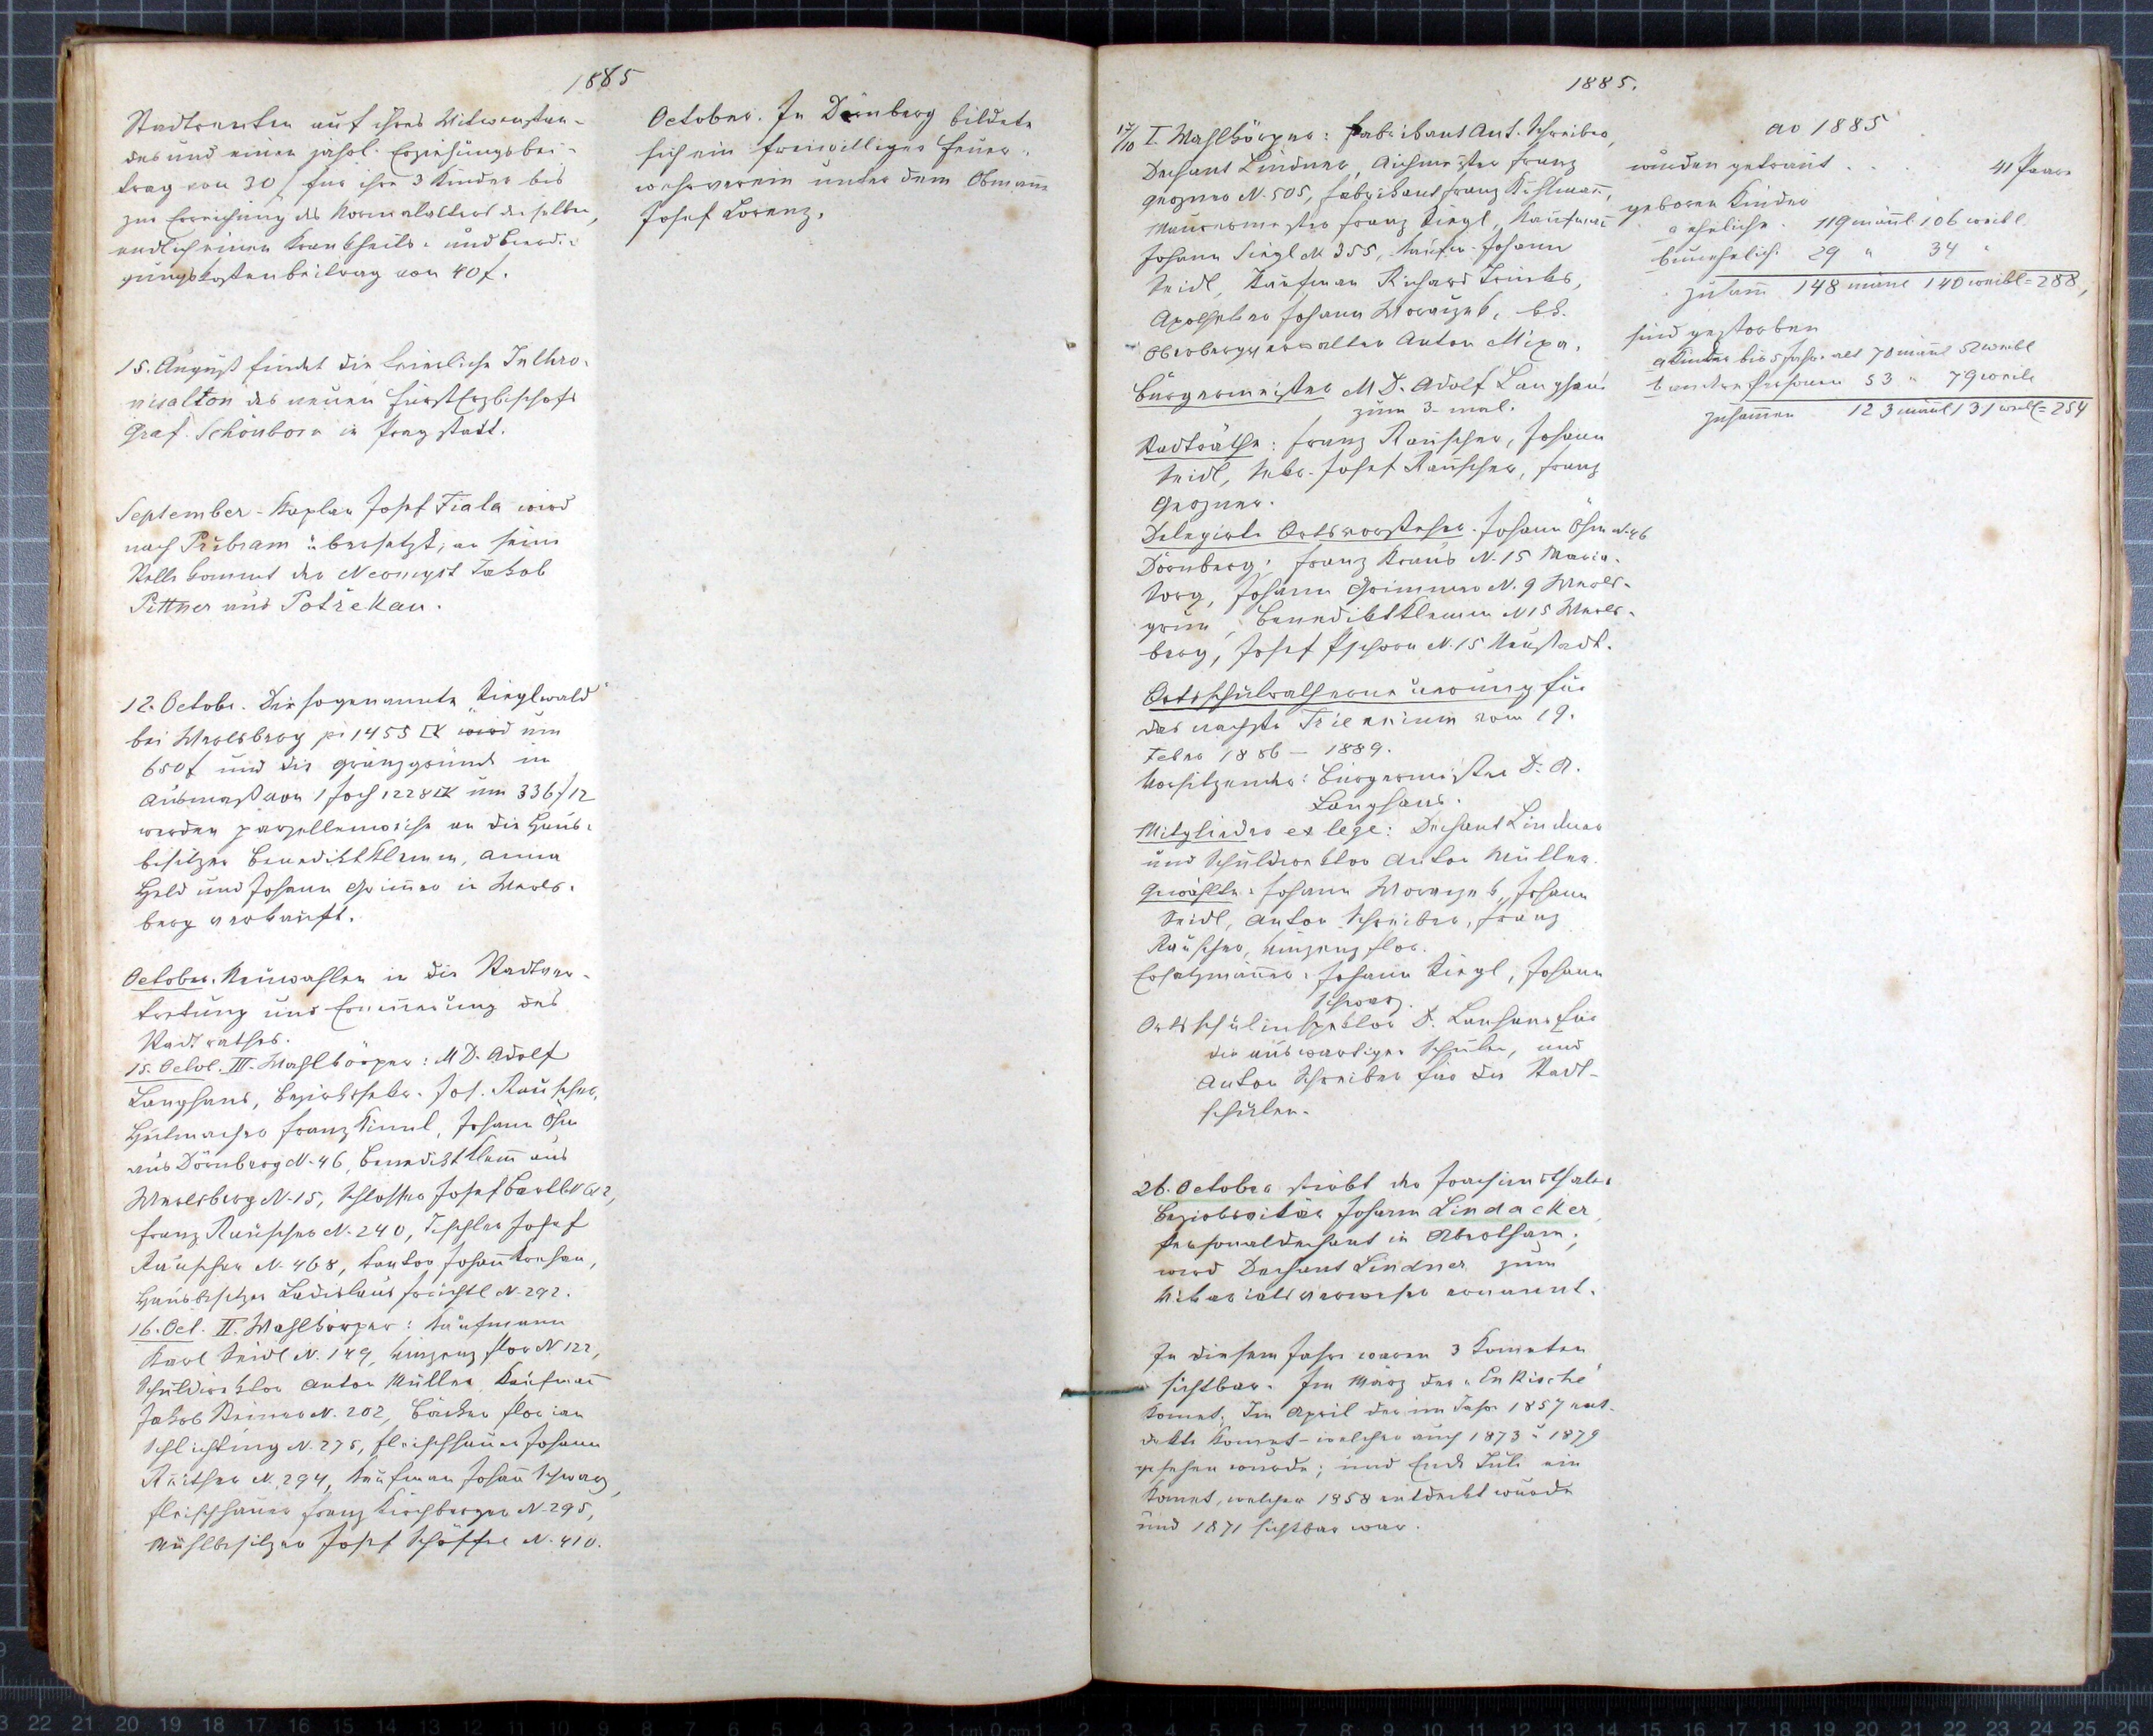 1885
Stadtrenten auf ihres Witwenstan-
des und einen jährl. Erziehungsbei-
trag von 30 f für ihre 3 Kinder bis
zur Erreichung des Normalalters derselben,
endlich einen Krankheits- und Beerdi-
gungskostenbeitrag von 40 f.
15. August findet die feierliche Inthro-
nisation des neuen Fürsterzbischofs
Graf Schönborn in Prag statt.
September - Kaplan Josef Fiala wird
nach Přibram übersetzt; an seine
Stelle kommt der Neomyst Jakob
Pittner aus Potřekau.
12. Octobr. Die sogenannte "Zieglwald"
bei Werlsberg pr 1455 □K wird um
650 f und die Gränzgründe im
Ausmaß von 1 Joch 1228 □K um 336 f 12
werden parzellenweise an die Haus-
besitzer Benedikt Klemm, Anna
Held und Johann Grimmer in Werls-
berg verkauft.
October. Neuwahlen in die Stadtver-
tretung und Erneuerung des
Stadtrathes.
15. Octob. III. Wahlkörper: MD. Adolf
Langhans, Bezirkssekr. Jos. Rauscher,
Hutmacher Franz Kimml, Johann Öhm
aus Dörnberg N. 46, Benedikt Klemm aus
Werlsberg N. 15, Schlosser Josef Bartl N
Franz Rauscher N. 240, Tischler Josef
Rauscher N. 468, Kantor Johann Krehan,
Hausbesitzer Ladislaus N. 292.
16. Oct. II. Wahlkörper: Kaufmann
Karl Seidl N. 149, Vinzenz Flor N 122,
Schuldirektor Anton Müller, Kaufmann
Jakob Steiner N. 202, Bäcker Florian
Schlichting N. 275, Fleischhauer Johann
N. 294, Kaufman Johann Schwarz,
Fleischhauer Franz Kirchberger N. 295,
Mühlbesitzer Josef Schöffel N. 410.
October. In Dörnberg bildete
sich ein freiwilliger Feuer-
wehrverein unter dem Obmanne
Josef Lorenz.
1885.
17/10 I. Wahlkörper: Fabrikant Ant. Schreiber,
Dechant Lindner, Aichmeister Franz
N. 505, Fabrikant Franz Kühlmann,
Maurermeister Franz Ziegl, Kaufmann
Johann Siegl N 355, Kaufm. Johann
Seidl, Kaufman Richard Trinks,
Apotheker Johann Worczek, kk.
Oberbergverwalter Anton Mixa.
Bürgermeister MD. Adolf Langhans
zum 3. mal.
Stadträthe: Franz Rauscher, Johann
Seidl, Sekr. Josef Rauscher, Franz
Delegirte Ortsvorsteher. Johann Öhm N. 46
Dörnberg; Franz Kraus N. 15 Maria-
sorg, Johann Grimmer N. 9 Werls-
grün; Benedikt Klemm N 15 Werls-
berg, Josef Pschorn N. 15 Neustadt.
Ortsschulratherneuerung für
das nächste Triennium vom 19.
Feber 1886 – 1889.
Vorsitzender: Bürgermeister D. A.
Langhans.
Mitglieder ex lege: Dechant Lindner
und Schuldirektor Anton Müller.
Gewählte: Johann Worczek, Johann
Seidl, Anton Schreiber, Franz
Rauscher, Vinzenz Flor.
Ersatzmänner: Johann Ziegl, Johann
Schwarz.
Ortsschulinspektor D. Lanhans für
die auswärtigen Schulen, und
Anton Schreiber für die Stadt-
schulen.
26. October stirbt der Joachimsthaler
Bezirksvikär Johann Lindacker,
Personaldechant in Abertham;
wird Dechant Lindner zum
Vikariatsverweser ernannt.
In diesem Jahre waren 3 Kometen
sichtbar. Im März der "Enkische"
Komet; Im April der im Jahr 1857 ent-
dekte Komet - welcher auch 1873 u 1879
gesehen wurde; und Ende Juli ein
Komet, welcher 1858 entdeckt wurde
und 1871 sichtbar war.
ao 1885
wurden getraut . . . 41 Paare
geboren Kinder
a eheliche. 119 männl. 106 weibl
b unehelich. 29 " 34 "
zusam̄ 148 männl 140 weibl = 288,
sind gestorben
a Kinder bis 5 Jahre alt 70 männl 52 weibl
b andere Personen 53 " 79 weibl
zusammen 123 männl 131 weibl = 254